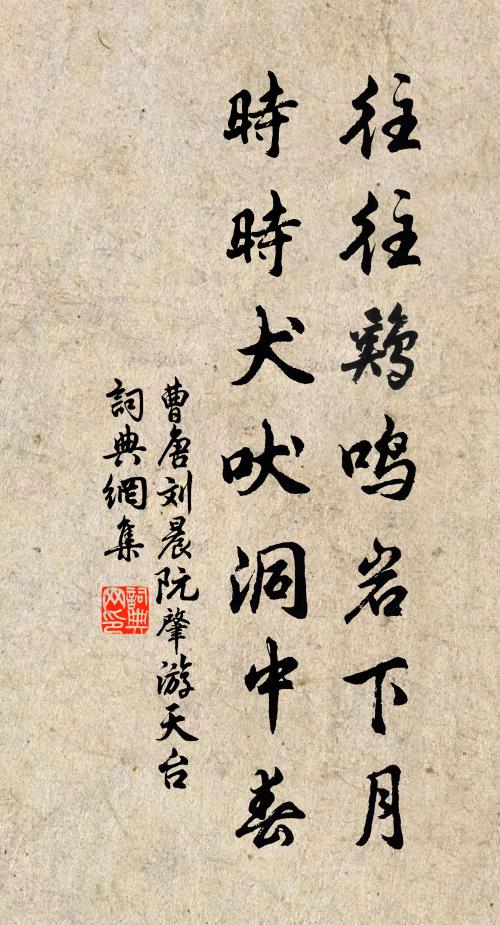 往往鷄鳴岩下月
時時犬吠洞中春
曹唐刘晨阮肇游天台
詞典網集
詞典网印